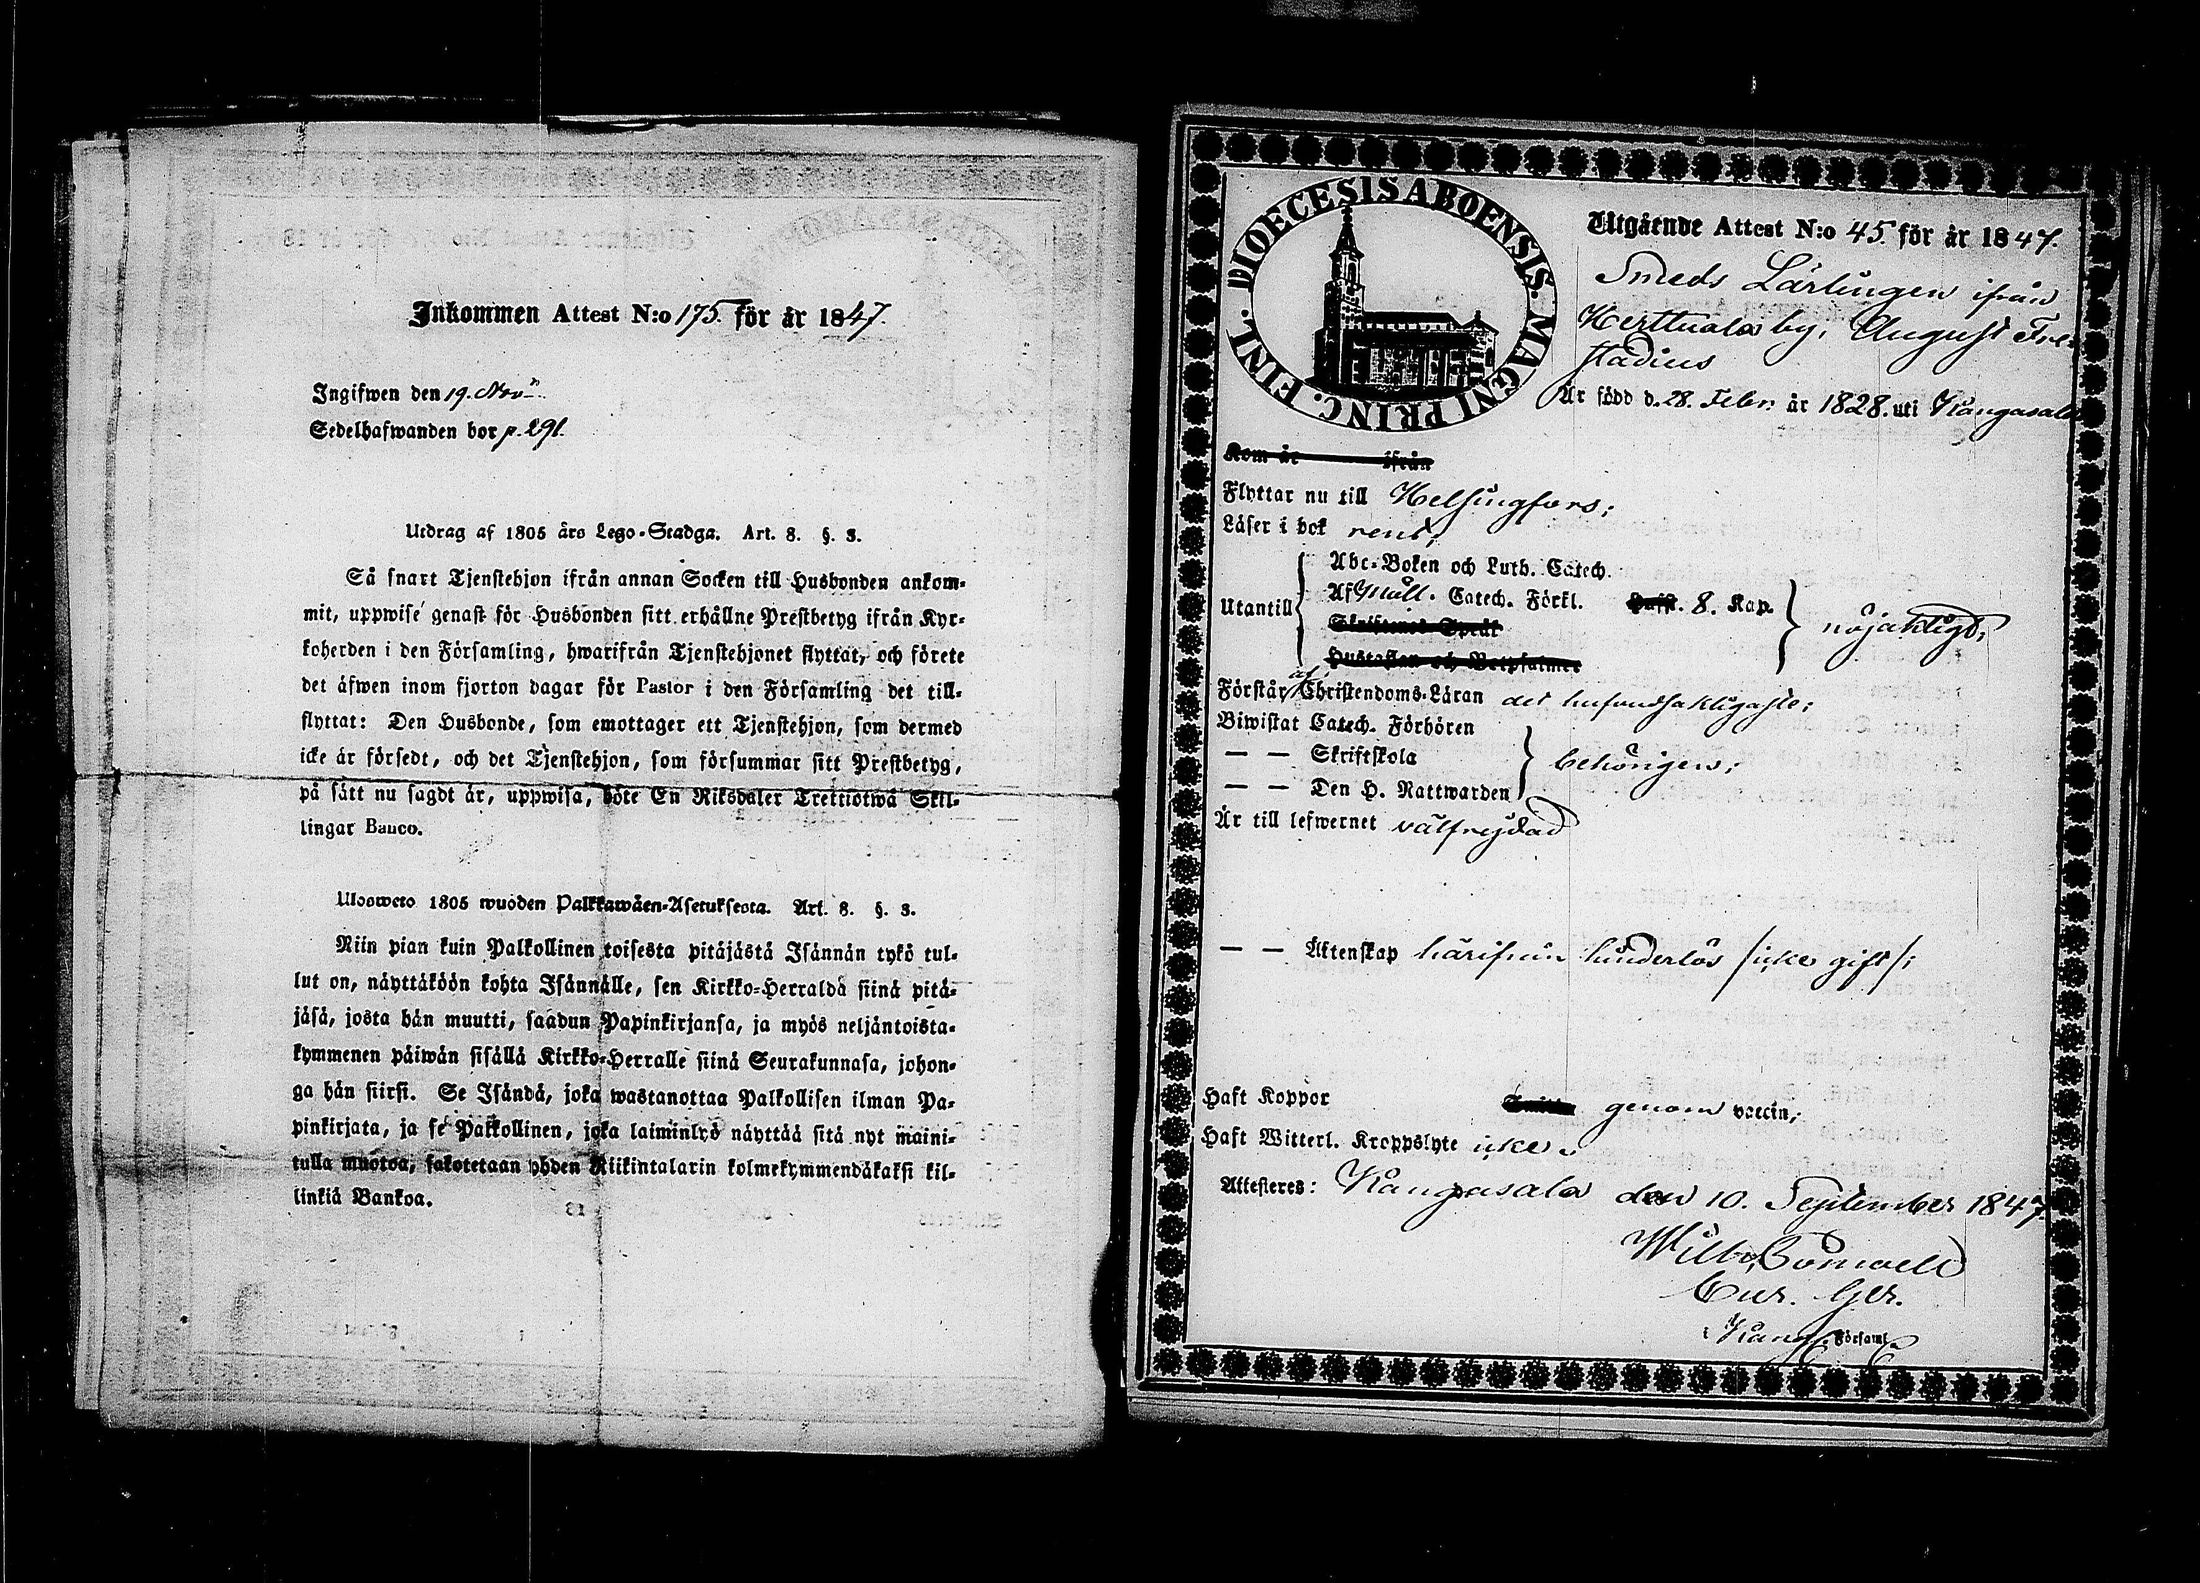 Inkommen Attest N:o 175. för år 1847.
Ingifwen den 19. Nov
Sedelhafwanden bor p. 291.
Utdrag af 1805 års Lego-Stadga. Art. 8. §. 3.
Så snart Tjenstehjon ifrån annan Socken till Husbonden ankom-
mit, uppwise genast för Husbonden sitt erhållne Prestbetyg ifrån Kyr-
koherden i den Församling, hwarifrån Tjenstehjonet flyttat, och förete
det äfwen inom fjorton dagar för Pastor i den Församling det till-
flyttat: Den Husbonde, som emottager ett Tjenstehjon, som dermed
icke är försedt, och det Tjenstehjon, som försummar sitt Prestbetyg,
på sätt nu sagdt är, uppwisa, böte En Riksdaler Trettiotwå Skil-
lingar Banco.
Ulosweto 1805 wuoden Palkkawäen-Asetuksesta. Art. 8. §. 3.
Niin pian kuin Palkollinen toisesta pitäjästä Isännän tykö tul-
lut on, näyttäköön kohta Isännälle, sen Kirkko-Herralda siinä pitä-
jäsä, josta hän muutti, saadun Papinkirjansa, ja myös neljäntoista-
kymmenen päiwän sisällä Kirkko-Herralle siinä Seurakunnasa, johon-
ga hän siirsi. Se Isändä, joka wastanottaa Palkollisen ilman Pa-
pinkirjata, ja se Palkollinen, joka laiminlyö näyttää sitä nyt maini-
tulla muotoa, sakotetaan yhden Riikintalarin kolmekymmendäkaksi kil-
linkiä Bankoa.
DIOECESIS ABOENSIS. MAGNI PRINC. FINL.
Utgående Attest N:o 45. för år 1847.
Smeds Lärlingen ifrån
Herttuala by, August Fre
stadius
Är född d. 28. Febr. år 1828. uti Kangasala
Kom år ifrån
Flyttar nu till Helsingfors;
Läser i bok rent;
Abc-Boken och Luth. Catech.
Utantill Af Möll. Catech. Förkl. Hufst. 8. Kap. nöjaktigt;
Skriftenes Språk
Hustaflan och Botpsalmer
Förstår af Christendoms-Läran det hufvudsakligaste;
Biwistat Catech. Förhören
— — Skriftskola behörigen;
— — Den H. Nattwarden
Är till lefwernet välfrejdad
— — Äktenskap härifrån hinderlös /icke gift/;
Haft Koppor genom vaccin;
Haft Witterl. Kroppslyte icke.
Attesteres: Kangasala den 10. September 1847.
Wilh.
i Kang. Församl.